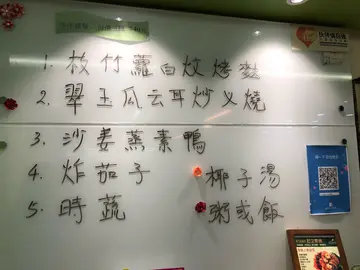 1. 枝竹蘿白炆烤麩
2. 翠玉瓜云耳炒义燒
3. 沙姜蒸素鴨
4. 炸茄子
椰子湯
5. 時蔬
粥或飯